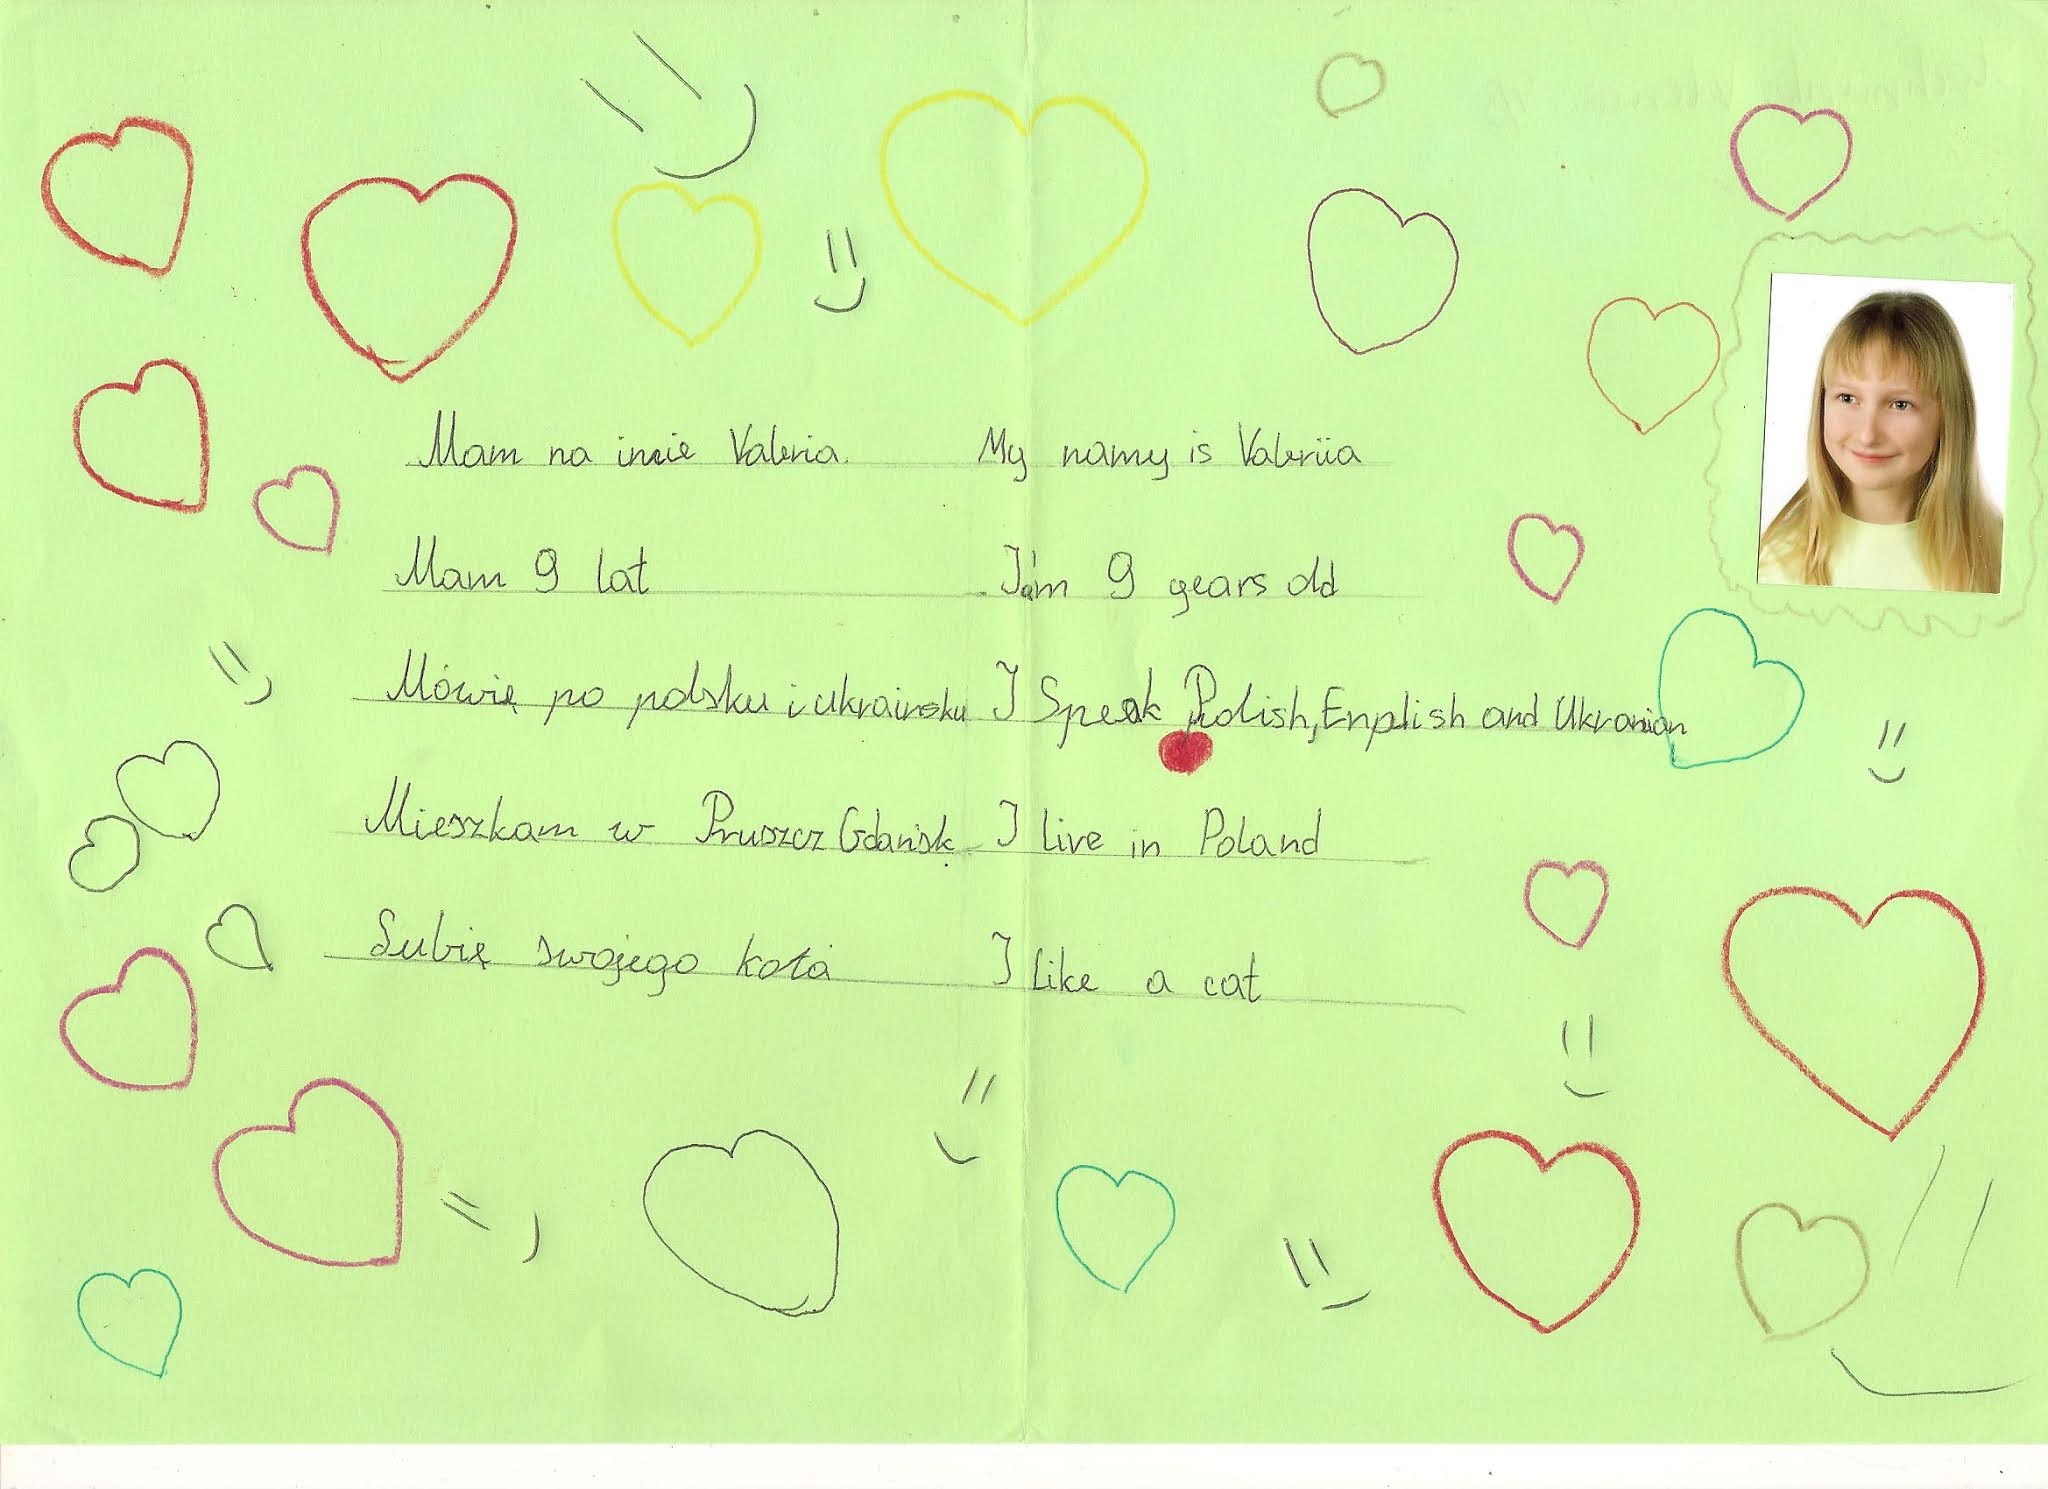 Mam na imie Valeria. My namy is Valeriia
Mam 9 lat I'am 9 years old
Mówię po polsku i ukrainsku I Speak Polish, English and Ukranian
Mieszkam w Pruszcz Gdańsk I live in Poland
Lubię swojego kota I like a cat